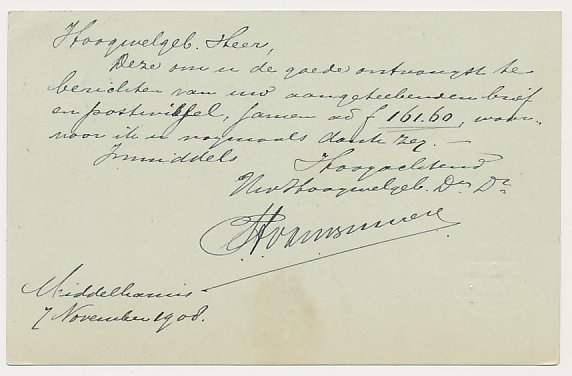 Hoogwelgeb. Heer,
Deze om u de goede ontvangst te
berichten van uw aangeteekenden brief
en postwissel, samen ad f 161.60, waar-
voor ik u nogmaals dank zeg. —
Inmiddels Hoogachtend
Uw Hoogwelgeb. Dw. Dr.
Middelharnis
7 November 1908.